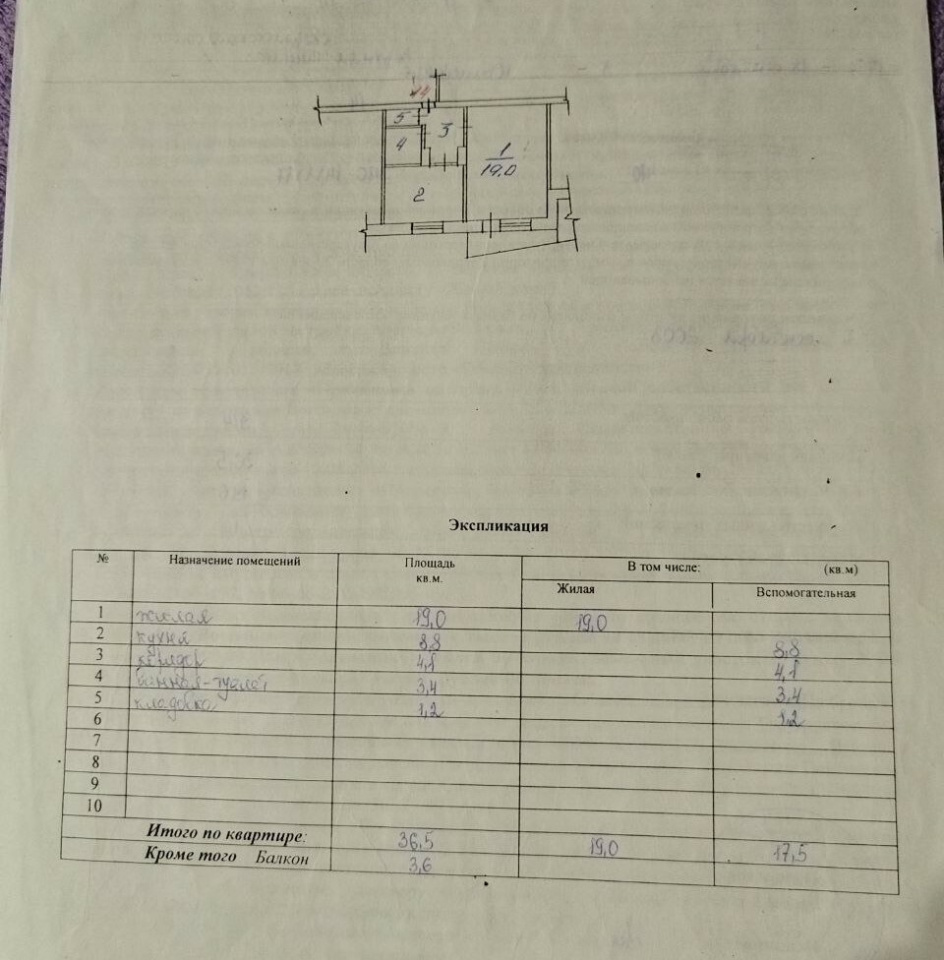 44
5
3
4
1
19.0
2
Экспликация
№ Назначение помещений Площадь кв.м. В том числе: (кв.м)
Жилая Вспомогательная
1 жилая 19,0 19,0
2 кухня 8,8 8,8
3 коридор 4,1 4,1
4 ванная-туалет 3,4 3,4
5 кладовка 1,2 1,2
6
7
8
9
10
Итого по квартире: 36,5 19,0 17,5
Кроме того Балкон 3,6